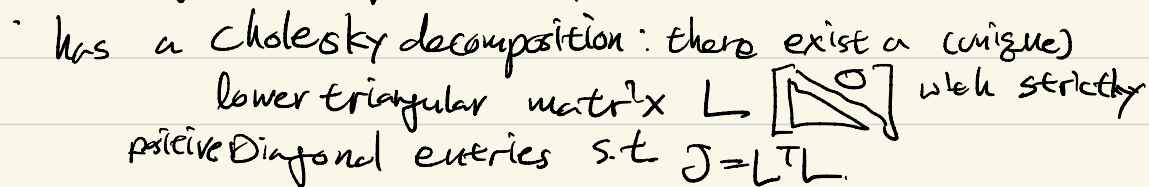 · has a Cholesky decomposition : there exist a (unique)
lower triangular matrix L [ 0 ] with strictly
positive Diagonal entries s.t. J = LᵀL.